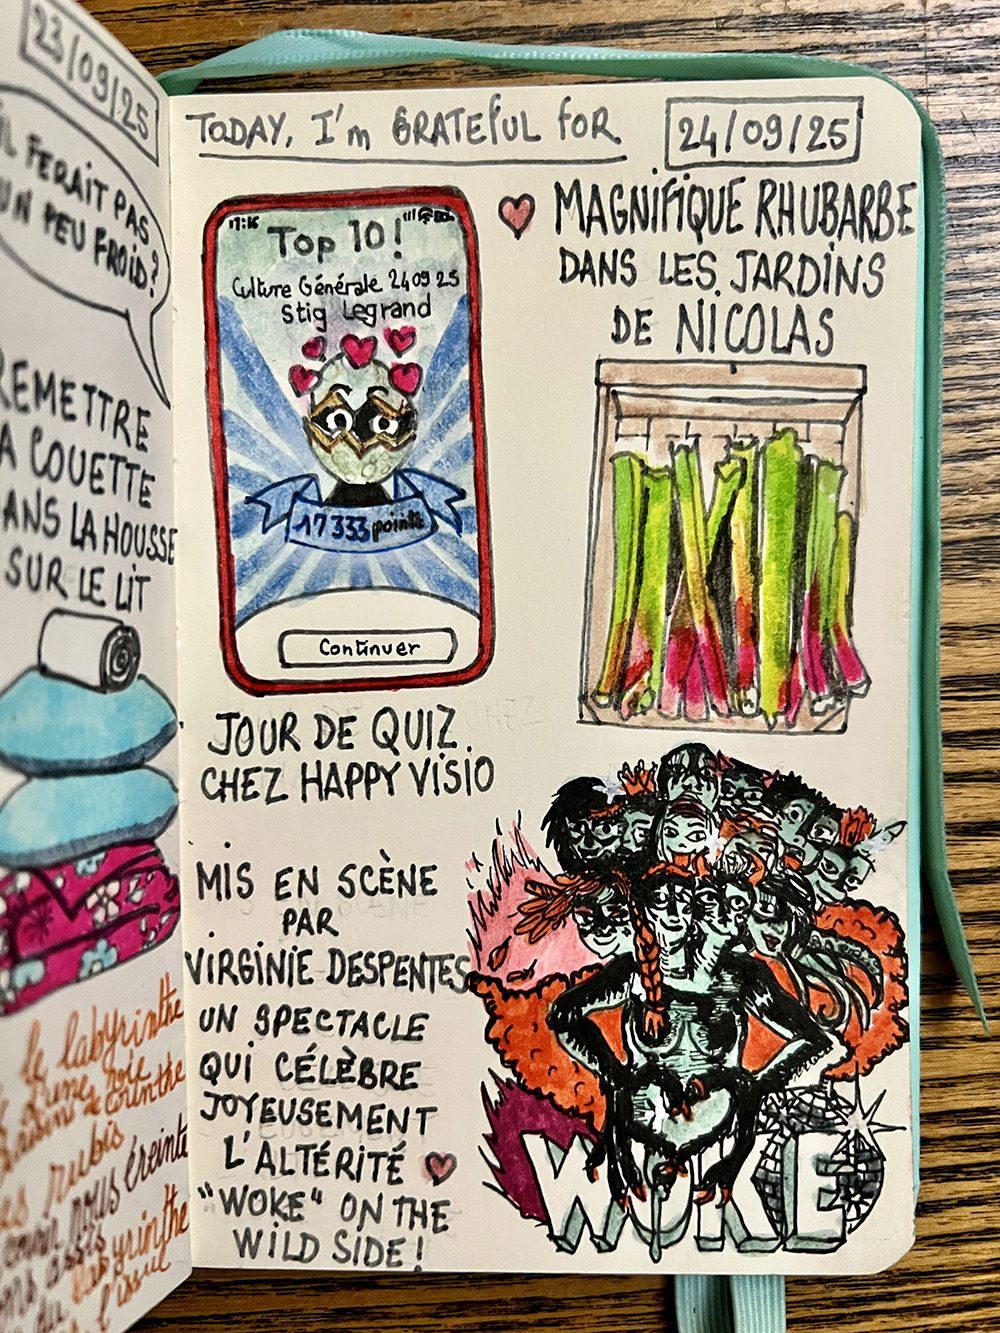 23/09/25
FERAIT PAS
UN PEU FROID?
REMETTRE
LA COUETTE
DANS LA HOUSSE
SUR LE LIT
le labyrinthe
TODAY, I'm GRATEFUL FOR
24/09/25
17:15
Top 10!
Culture Générale 24 09 25
Stig Legrand
17333 points
Continuer
JOUR DE QUIZ
CHEZ HAPPY VISIO
MAGNIFIQUE RHUBARBE
DANS LES JARDINS
DE NICOLAS
MIS EN SCÈNE
PAR
VIRGINIE DESPENTES
UN SPECTACLE
QUI CÉLÈBRE
JOYEUSEMENT
L'ALTÉRITÉ
"WOKE" ON THE
WILD SIDE!
WOKE